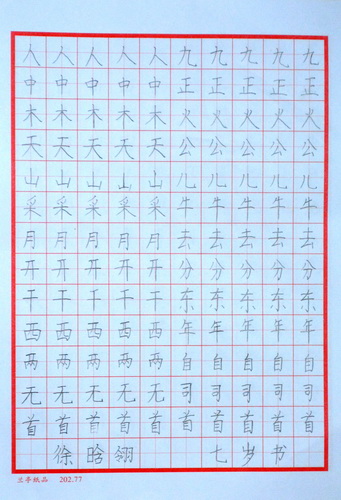 人人人人人九九九九九
中中中中中正正正正正
木木木木木火火火火火
天天天天天公公公公公
山山山山山儿儿儿儿儿
采采采采采牛牛牛牛牛
月月月月月去去去去去
开开开开开分分分分分
干干干干干东东东东东
西西西西西年年年年年
两两两两两自自自自自
无无无无无司司司司司
首首首首首首首首首首
徐晗翎 七岁书
兰亭纸品 202.77